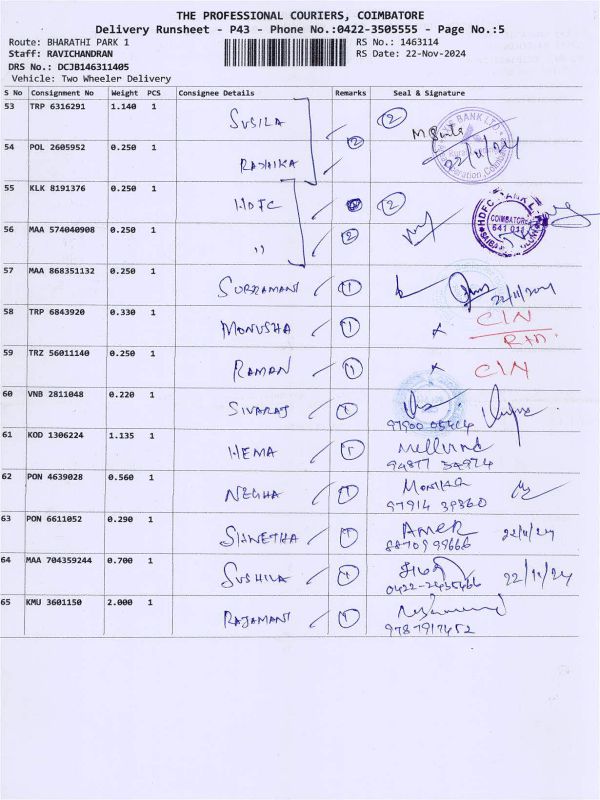 THE PROFESSIONAL COURIERS, COIMBATORE
Delivery Runsheet - P43 - Phone No.:0422-3505555 - Page No.:5
Route: BHARATHI PARK 1 RS No.: 1463114
Staff: RAVICHANDRAN RS Date: 22-Nov-2024
DRS No.: DCJB146311405
Vehicle: Two Wheeler Delivery
S No Consignment No Weight PCS Consignee Details Remarks Seal & Signature
53 TRP 6316291 1.140 1 SUSILA 2
54 POL 2605952 0.250 1 RADHIKA 2 22/11/24
55 KLK 8191376 0.250 1 HDFC 2
HDFC BANK LTD
COIMBATORE
641 011
56 MAA 574040908 0.250 1 " 2
57 MAA 868351132 0.250 1 SUBRAMANI 1 22/11/2024
58 TRP 6843920 0.330 1 MONUSHA 1 x C/N
59 TRZ 56011140 0.250 1 RAMAN 1 x C/N
60 VNB 2811048 0.220 1 SIVARAJ 1
97900 05464
61 KOD 1306224 1.135 1 HEMA 1
94877 34974
62 PON 4639028 0.560 1 NEGHA 1 MONIKA
97914 39860
63 PON 6611052 0.290 1 SHWETHA 1 22/11/24
88709 99666
64 MAA 704359244 0.700 1 SUSHILA 1 22/11/24
0422-2435466
65 KMU 3601150 2.000 1 RAJAMANI 1
9787917452